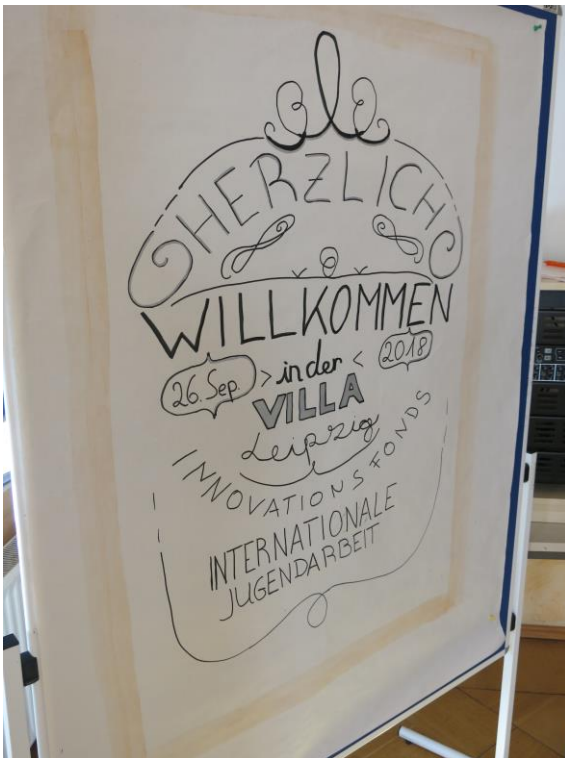 HERZLICH
WILLKOMMEN
26. Sep. > in der < 2018
VILLA
Leipzig
INNOVATIONSFONDS
INTERNATIONALE
JUGENDARBEIT